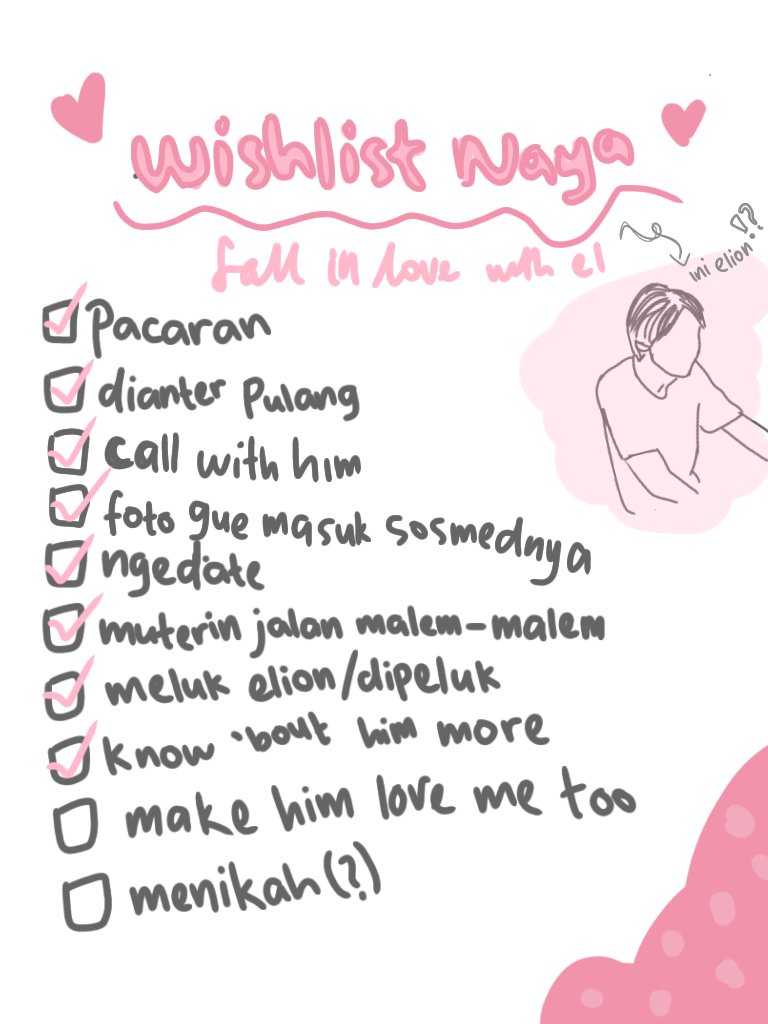 Wishlist Naya
fall in love with el
ini elion!??
pacaran
dianter pulang
call with him
foto gue masuk sosmednya
ngedate
muterin jalan malem-malem
meluk elion/dipeluk
know 'bout him more
make him love me too
menikah(?)